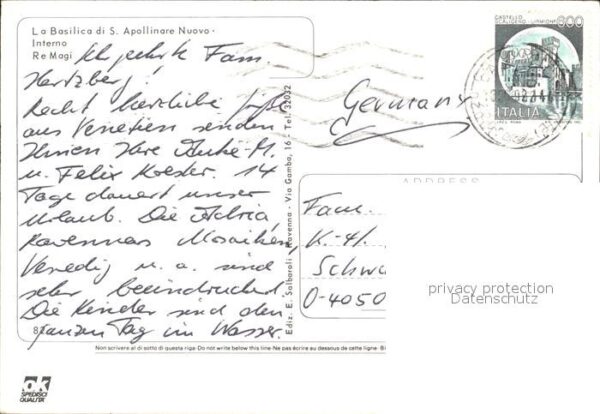 La Basilica di S. Apollinare Nuovo -
Interno
Re Magi
Fam.
Hertzberg!
Recht herzliche Grüße
aus Venetien senden
Ihnen Ihre Anke M.
u. Felix Koeder. 14
Tage dauert unser
Urlaub. Die Adria,
Ravennas Mosaiken,
Venedig u. a. sind
sehr beeindruckend.
Die Kinder sind den
ganzen Tag im Wasser.
Germany
CASTELLO
SCALIGERO SIRMIONE
600
ITALIA
Ediz. E. Salbaroli - Ravenna - Via Gamba, 16 - Tel. 32032
ADDRESS
Fam.
K.-H.
Schwa
O-4050
privacy protection
Datenschutz
Non scrivere al di sotto di questa riga-Do not write below this line-Ne pas écrire au dessous de cette ligne-
ok
SPEDISCI
QUALITA'